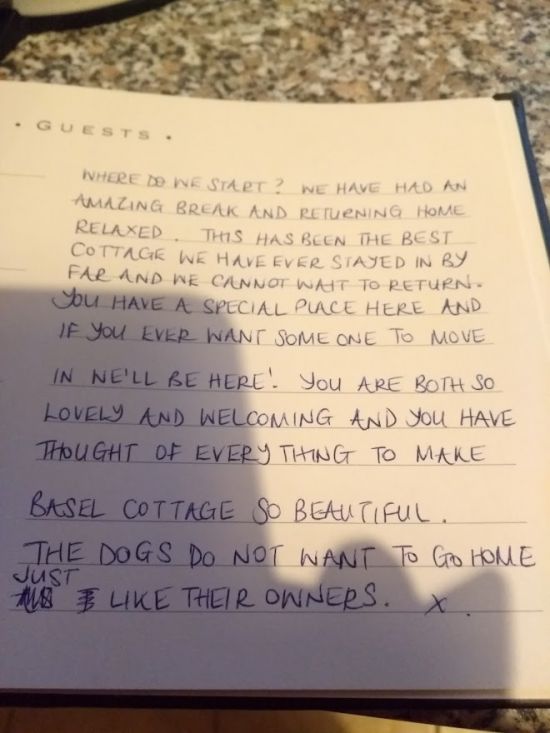 • GUESTS •
WHERE DO WE START? WE HAVE HAD AN
AMAZING BREAK AND RETURNING HOME
RELAXED. THIS HAS BEEN THE BEST
COTTAGE WE HAVE EVER STAYED IN BY
FAR AND WE CANNOT WAIT TO RETURN.
YOU HAVE A SPECIAL PLACE HERE AND
IF YOU EVER WANT SOME ONE TO MOVE
IN WE'LL BE HERE! YOU ARE BOTH SO
LOVELY AND WELCOMING AND YOU HAVE
THOUGHT OF EVERY THING TO MAKE
BASEL COTTAGE SO BEAUTIFUL.
THE DOGS DO NOT WANT TO GO HOME
JUST
LIKE THEIR OWNERS. X.